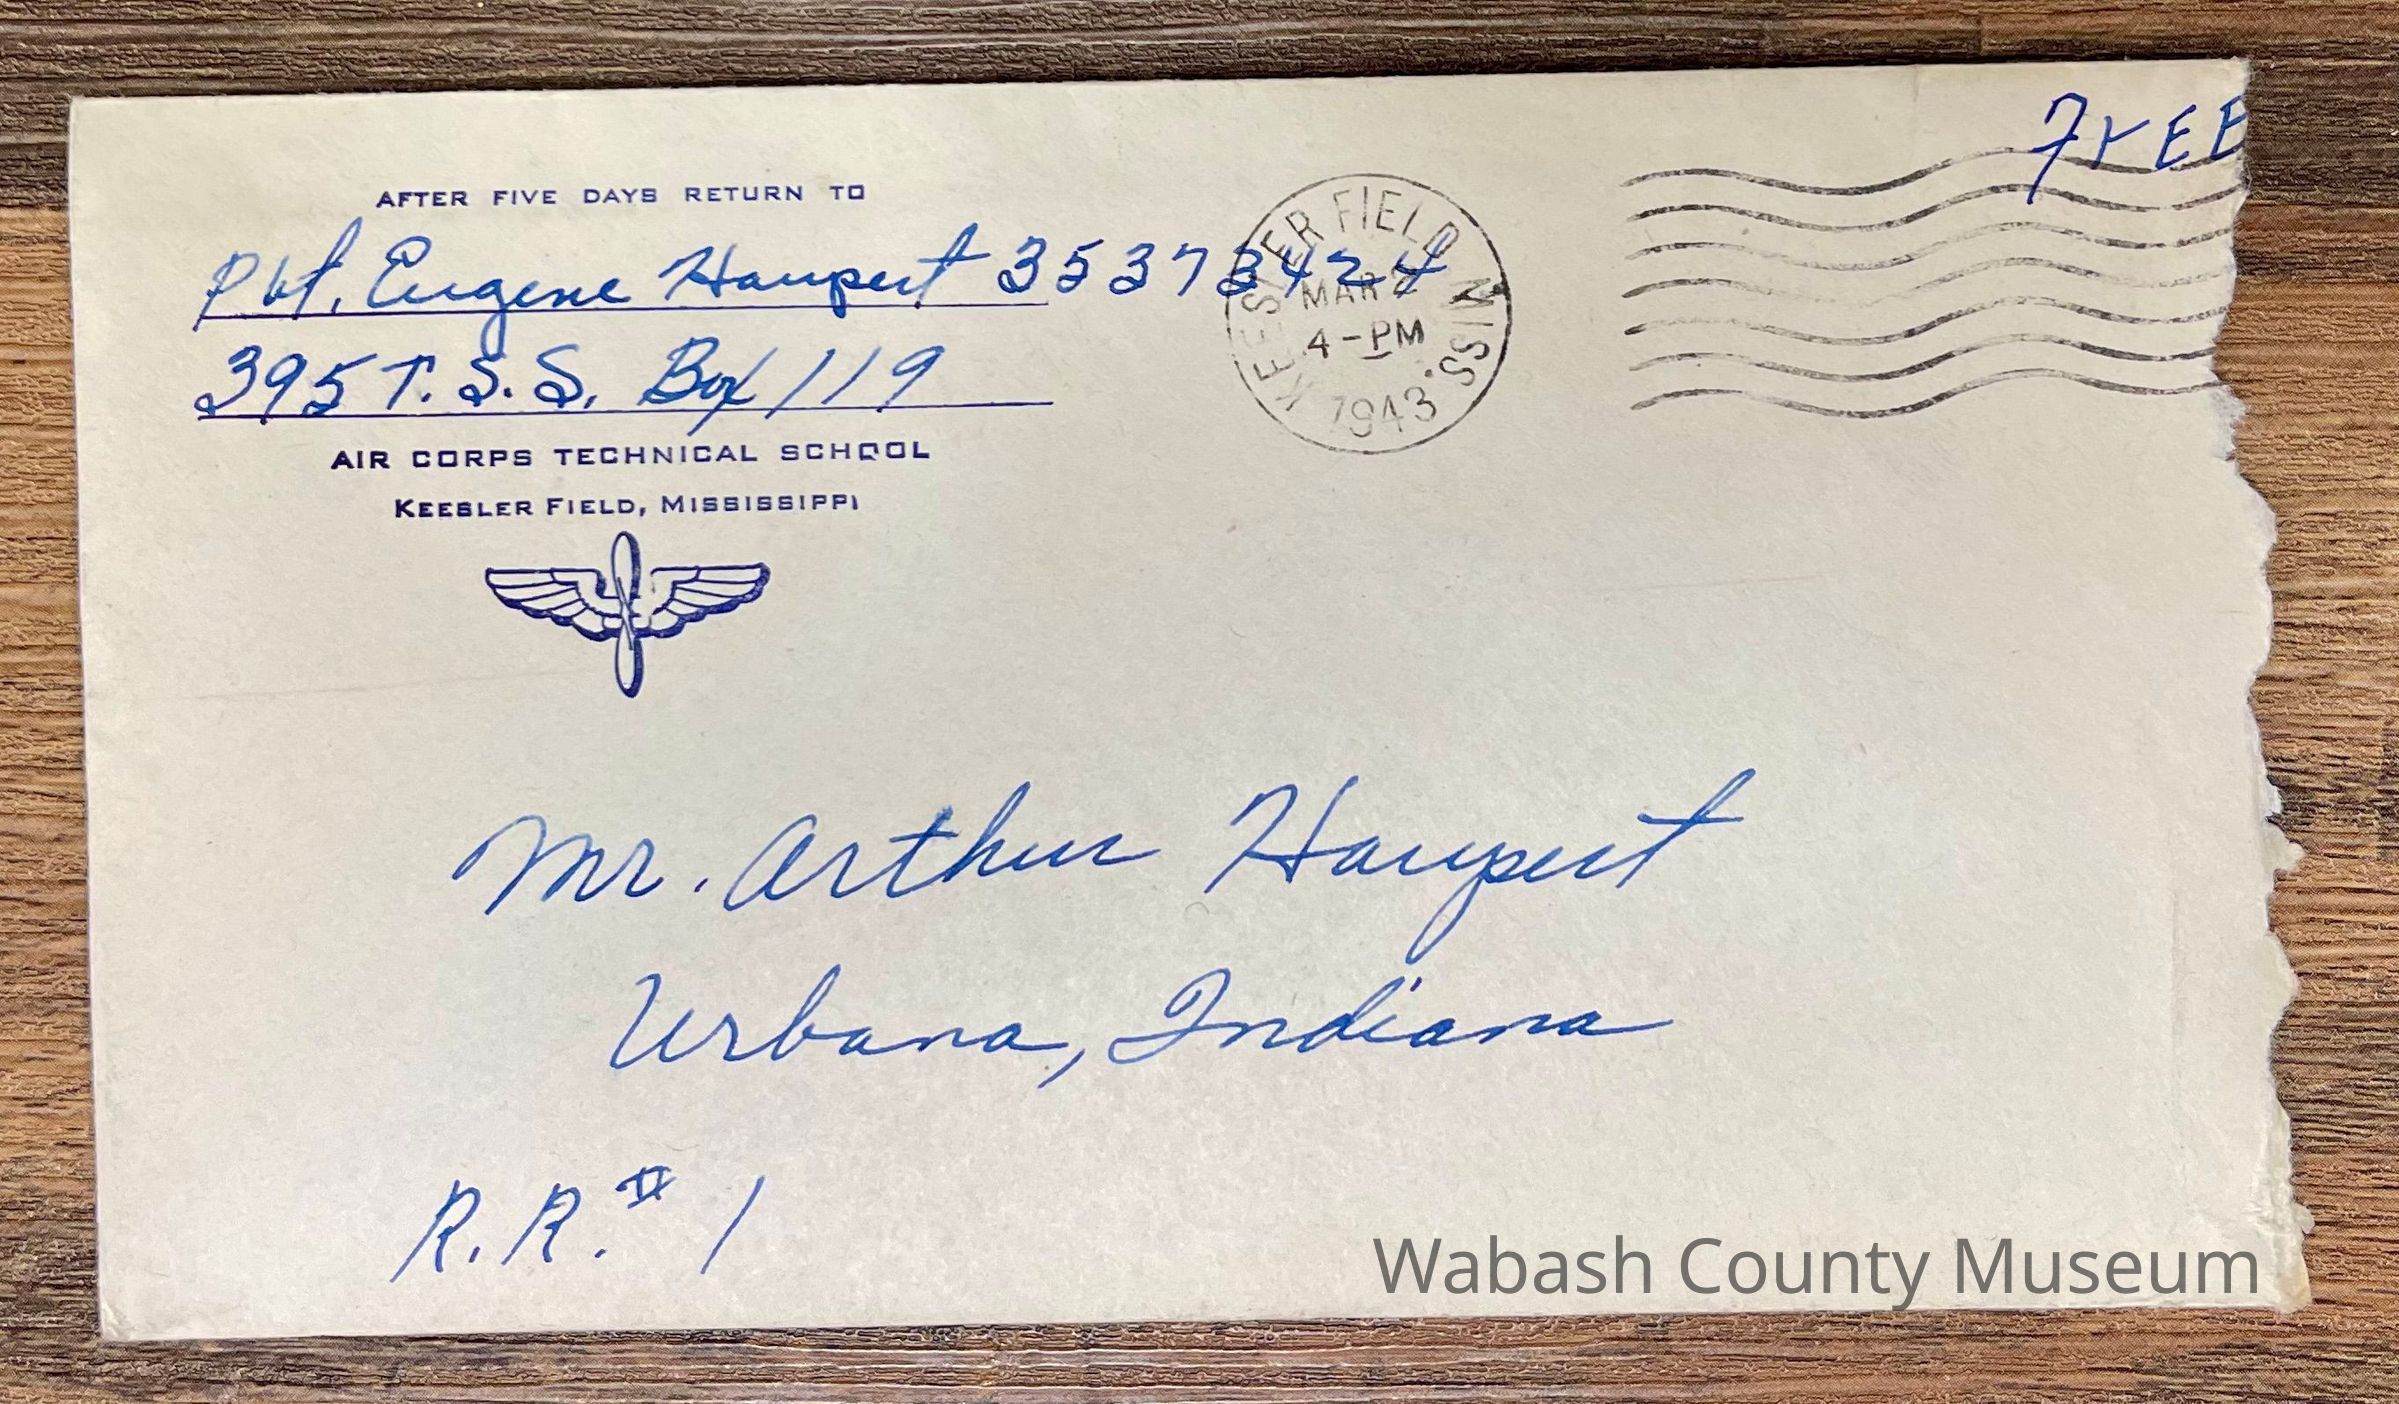 AFTER FIVE DAYS RETURN TO
Pvt. Eugene Haupert 35373424
395 T. S. S. Box 119
AIR CORPS TECHNICAL SCHOOL
KEESLER FIELD, MISSISSIPPI
KEESLER FIELD MISS.
MAR 2
4-PM
1943
FrEE
Mr. Arthur Haupert
Urbana, Indiana
R.R. # 1
Wabash County Museum